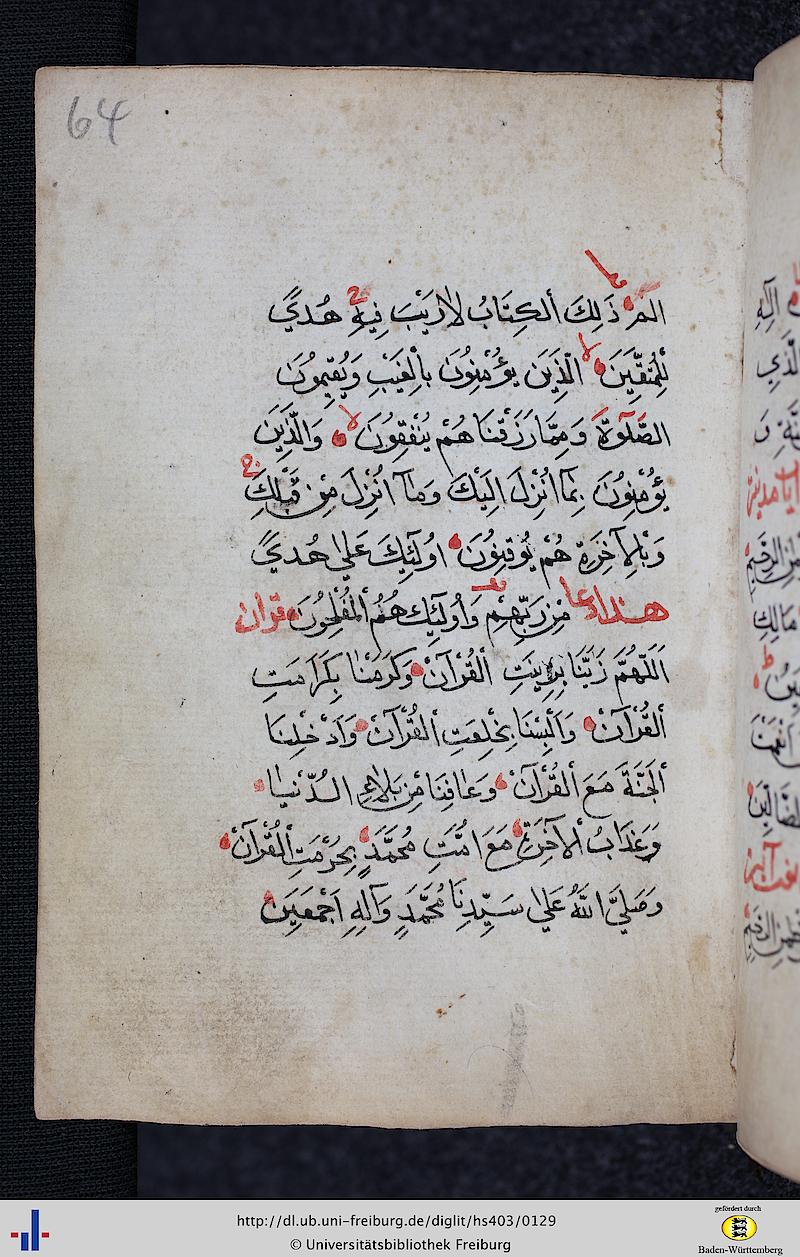 64
الم ذَلِكَ الكِتَابُ لَارَيْبَ فِيهِ هُدًي
لِلْمُتَّقِينَ الَّذِينَ يُؤْمِنُونَ بِالْغَيْبِ وَيُقِيمُونَ
الصَّلَوةَ وَمِمَّا رَزَقْنَا هُمْ يُنْفِقُونَ وَالَّذِينَ
يُؤْمِنُونَ بِمَا انُزِلَ اِلَيْكَ وَمَآ انُزِلَ مِنْ قَبْلِكَ
وَبِالآخِرَةِ هُمْ يُوقِنُونَ اوُلَئِكَ عَلَي هُدًي
هذا دعا مِن رَبِّهِمْ وَاُولَئِكَ هُمُ الْمُفْلِحُونَ قرآن
اَللّهُمَّ زَيِّنَّا بِزِينَتِ القُرْآنْ وَكَرِّمْنَا بِكَرَامَتِ
القُرْآنْ وَاَلْبِسْنَا بِخْلِعَتِ القُرْآنْ وَاَدْخْلِنَا
الجَنَّةَ مَعَ القُرْآنْ وَعَافِنَا مِن بَلَاءِ الدُّنْيَا
وَعَذَابُ الآخِرَةِ مَعَ امَُّتِ مُحَمَّدٍ بِحُرْمَتِ القُرْآنْ
وَصَلَيَّ اللَّهُ عَلَي سَيِّدِنَا مُحَمَّدٍ وَآلِهِ اَجْمَعِينَ
http://dl.ub.uni-freiburg.de/diglit/hs403/0129
© Universitätsbibliothek Freiburg
gefördert durch
Baden-Württemberg